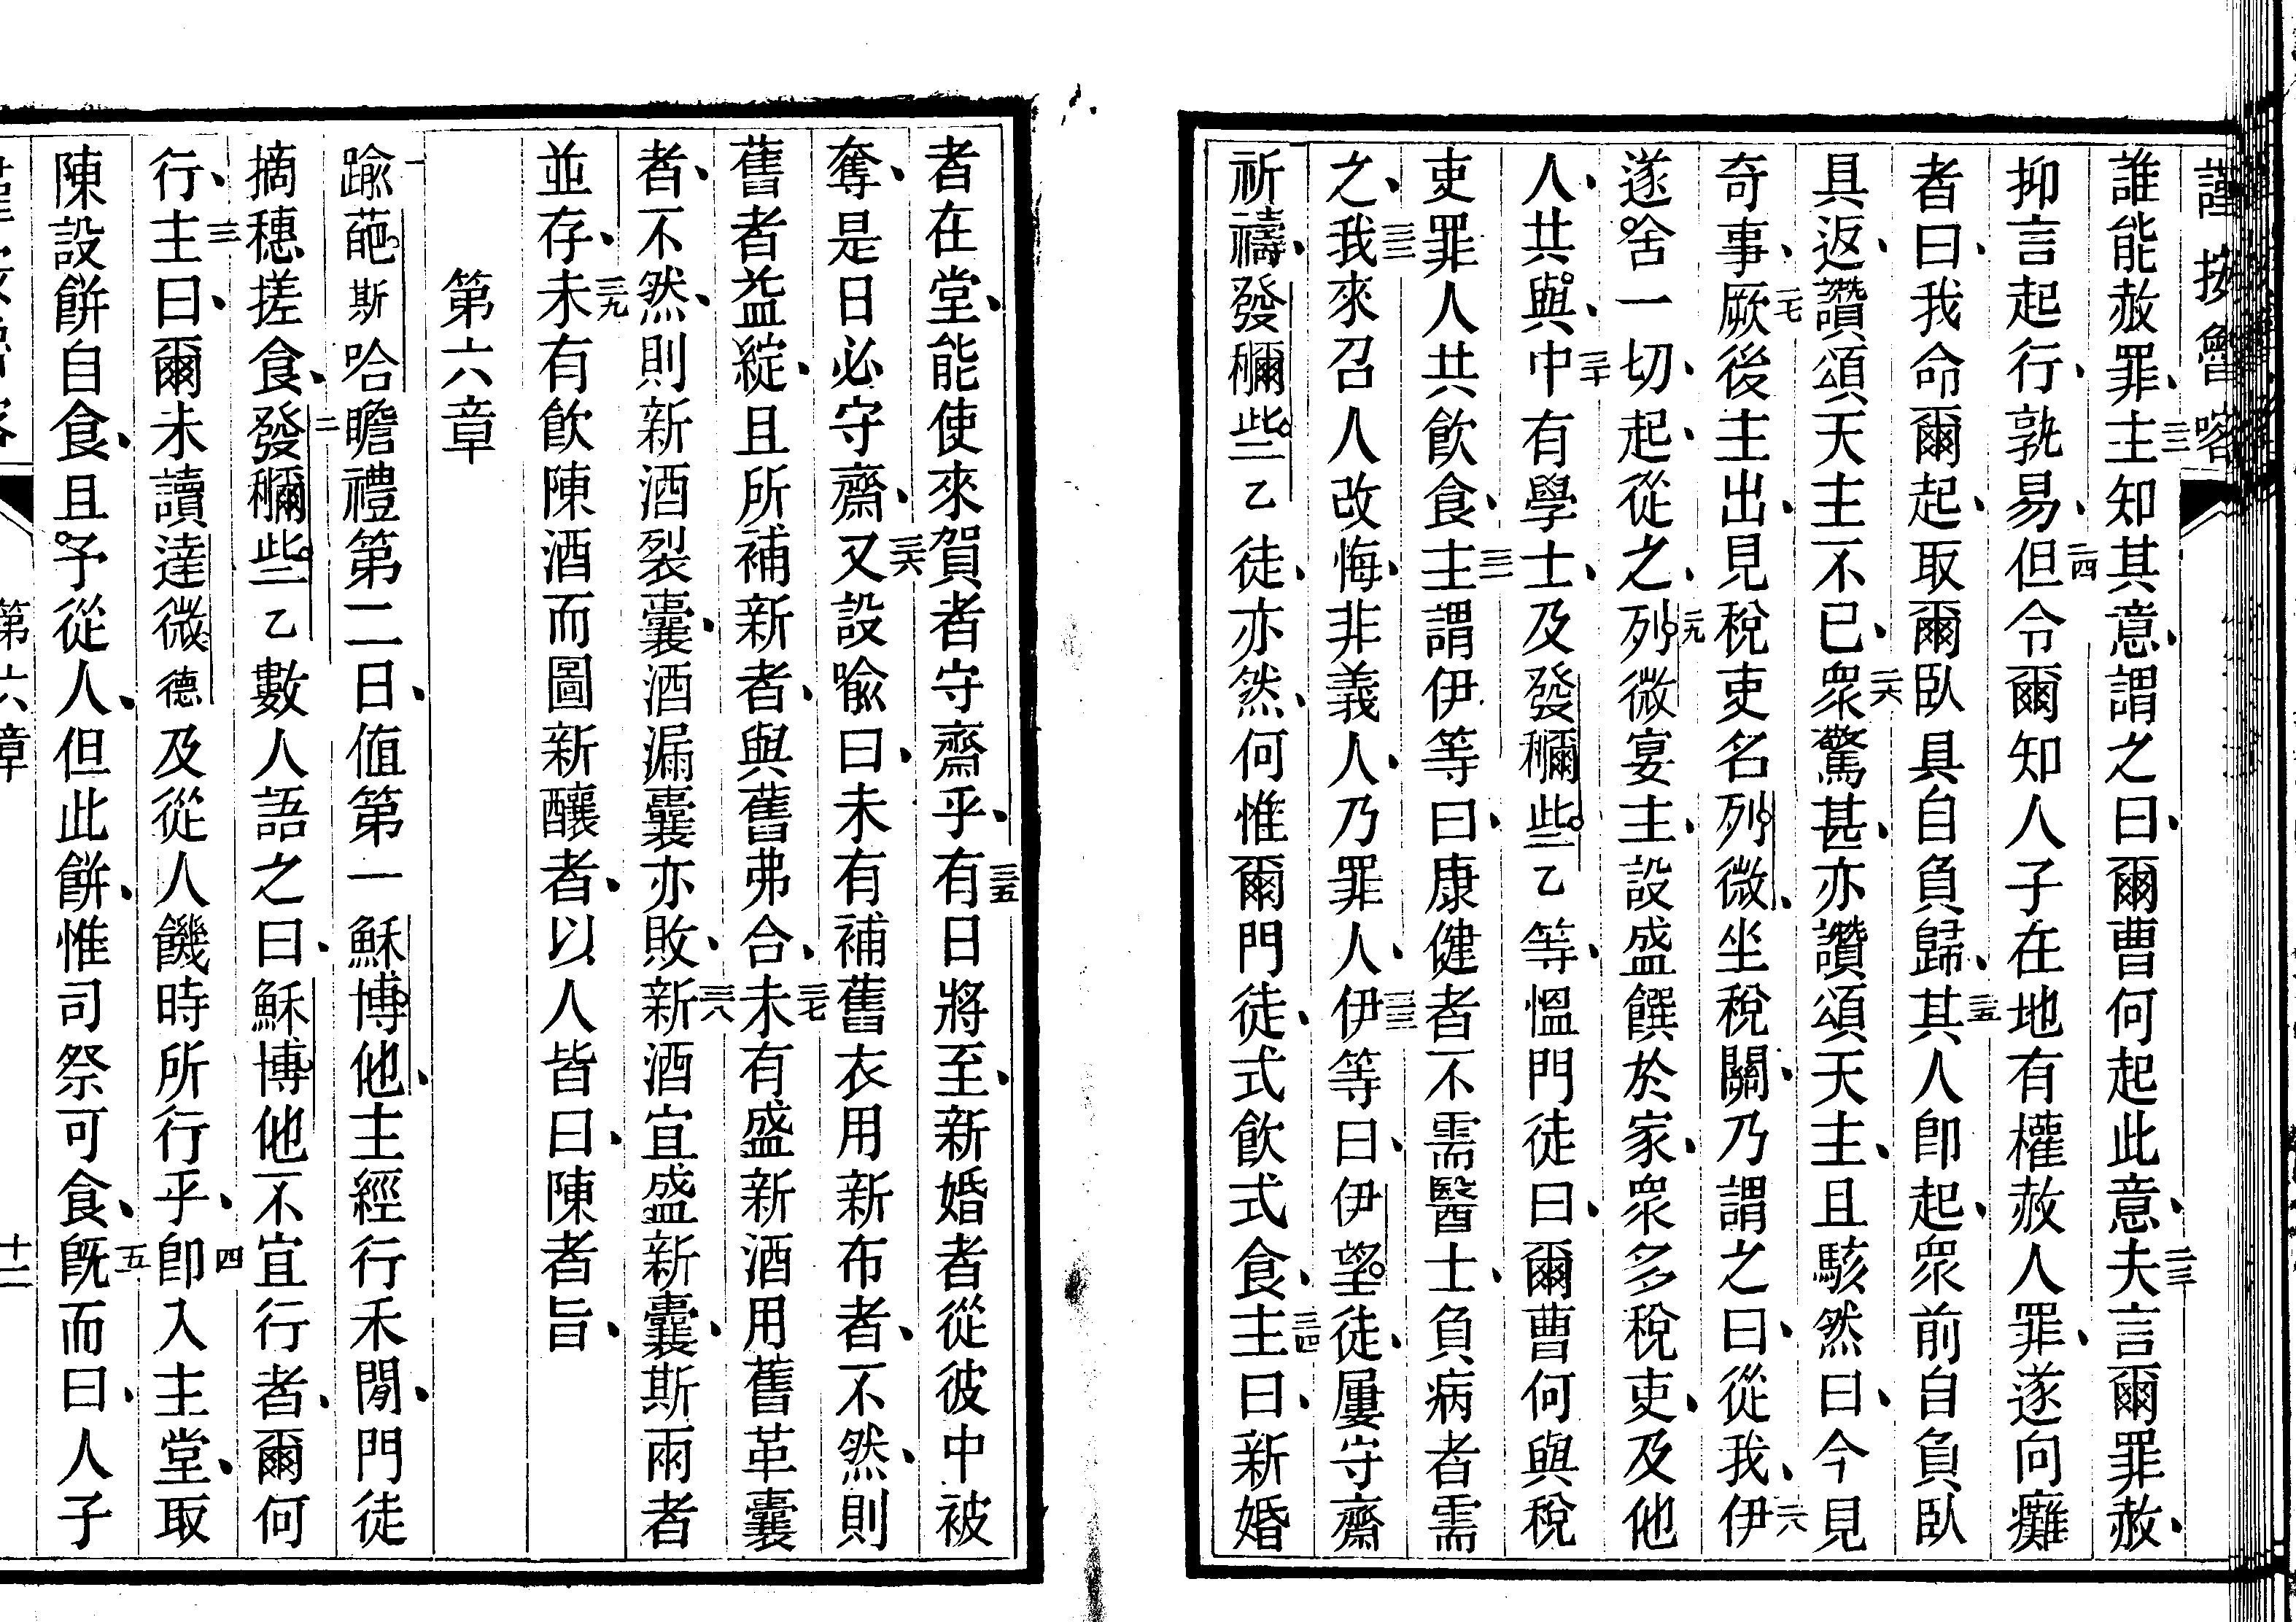 謹按魯喀
誰能赦罪、二二主知其意、謂之曰、爾曹何起此意、二三夫言爾罪赦、
抑言起行、孰易、二四但令爾知人子在地有權赦人罪、遂向癱
者曰、我命爾起、取爾臥具自負歸、二五其人卽起、衆前自負臥
具返、讚頌天主不已、二六衆驚甚、亦讚頌天主、且駭然曰、今見
奇事、二七厥後主出、見稅吏名列微、坐稅關、乃謂之曰、從我、二八伊
遂舍一切、起、從之、二九列微宴主、設盛饌於家、衆多稅吏、及他
人、共與、三十中有學士、及發穪些乙等、慍門徒曰、爾曹何與稅
吏罪人共飲食、三一主謂伊等曰、康健者不需醫士、負病者需
之、三二我來召人改悔、非義人、乃罪人、三三伊等曰、伊望徒、屢守齋
祈禱、發穪些乙徒、亦然、何惟爾門徒、式飲式食、三四主曰、新婚
者在堂、能使來賀者守齋乎、三五有日將至、新婚者從彼中被
奪、是日必守齋、三六又設喩曰、未有補舊衣用新布者、不然、則
舊者益綻、且所補新者、與舊弗合、三七未有盛新酒用舊革囊
者、不然、則新酒裂囊、酒漏囊亦敗、三八新酒宜盛新囊、斯兩者
並存、三九未有飲陳酒而圖新釀者、以人皆曰、陳者旨、
第六章
一踰葩斯哈瞻禮第二日、値第一穌博他、主經行禾閒、門徒
摘穗、搓食、二發穪些乙數人語之曰、穌博他不宜行者、爾何
行、三主曰、爾未讀達微德及從人饑時所行乎、四卽入主堂、取
陳設餅自食、且予從人、但此餅、惟司祭可食、五旣而曰、人子
第六章
十二